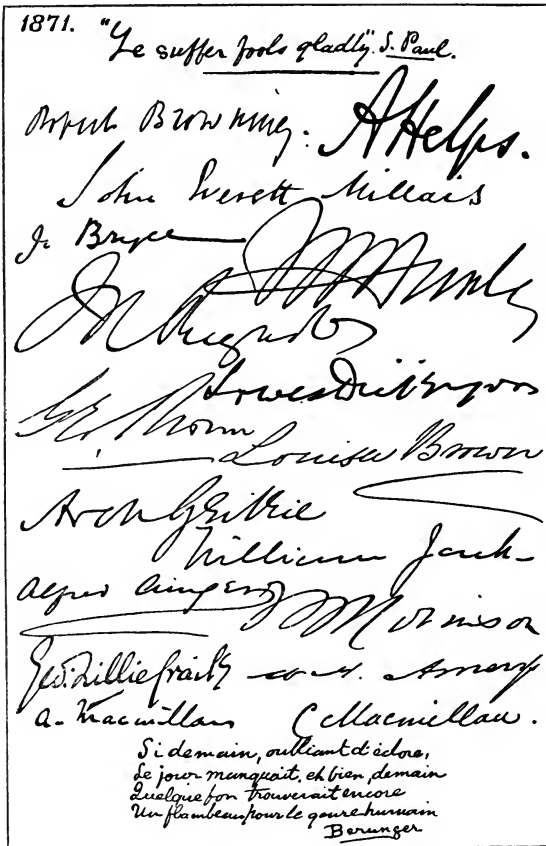 1871. "Ye suffer fools gladly". S. Paul.
Robert Browning. A Helps.
John Everett Millais
J. Bryce
Lowes Dickinson
Louisa Brown
Arch Geikie
William Jack
Alfred Ainger
Geo: Lillie Craik
A. Macmillan C Macmillan.
Si demain, oubliant d'éclore,
Le jour manquait, eh bien, demain
Quelque fou trouverait encore
Un flambeau pour le genre humain
Beranger